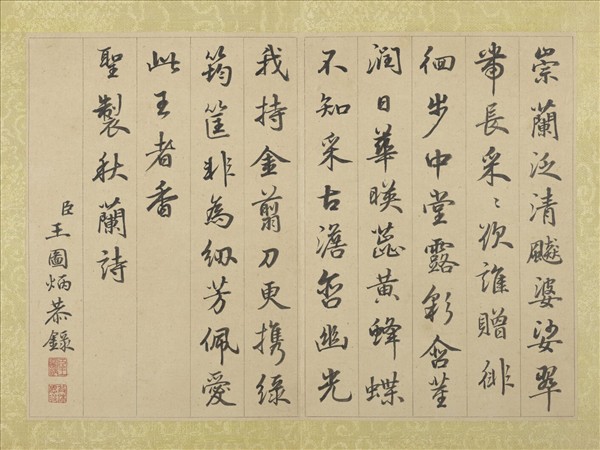 崇蘭泛清飈婆娑翠
帶長采〻欲誰贈徘
徊步中堂露彩含莖
潤日華暎蕊黃蜂蝶
不知采古澹含幽光
我持金翦刀更携綠
筠筐非為紉芳佩愛
此王者香
聖製秋蘭詩
臣王圖炳恭錄